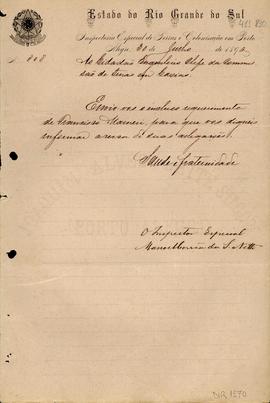 Estado do Rio Grande do Sul
Inspectoria Especial de Terras e Colonisação em Porto
Alegre, 20 de Junho de 1892
Nº 808
Ao Cidadão Engenheiro Chefe da Commis
são de Terras em Caxias
Envio vos o incluso requerimento
de Francisco para que vos digneis
informar acerca de suas allegações.
Saude e fraternidade
O Inspector Especial
Manoel da S. Netto
DIR 1570